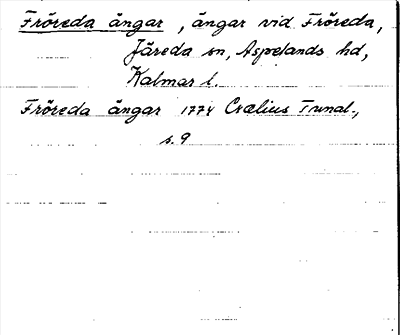 Fröreda ängar, ängar vid Fröreda,
Järeda sn, Aspelands hd,
Kalmar l.
Fröreda ängar 1774 Crælius Tunal.,
s. 9